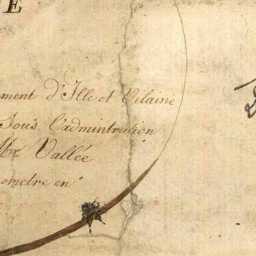 E
ement d'Ille et Vilaine
Sous l'administration
Mr Vallée
ometre en